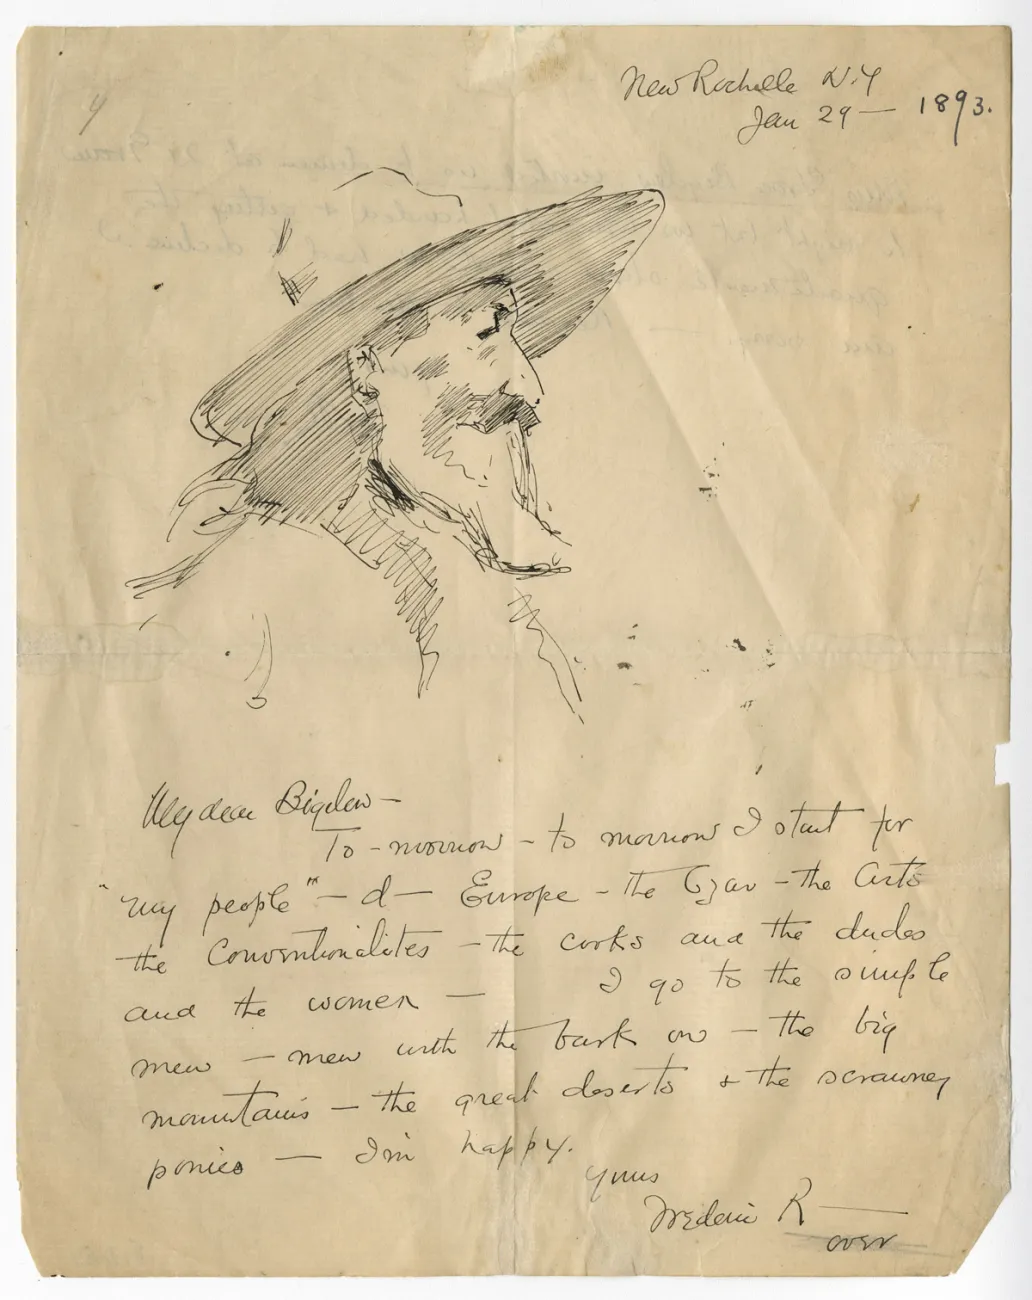 New Rochelle N.Y
Jan 29 — 1893.
My dear Bigelow —
To-morrow - to morrow I start for
"my people" — d — Europe - the Czar - the Arts
the Conventionalites - the cooks and the dudes
and the women — I go to the simple
men — men with the bark on — the big
mountains — the great deserts & the scrawney
ponies — I'm happy.
Yours
Frederic R—
over